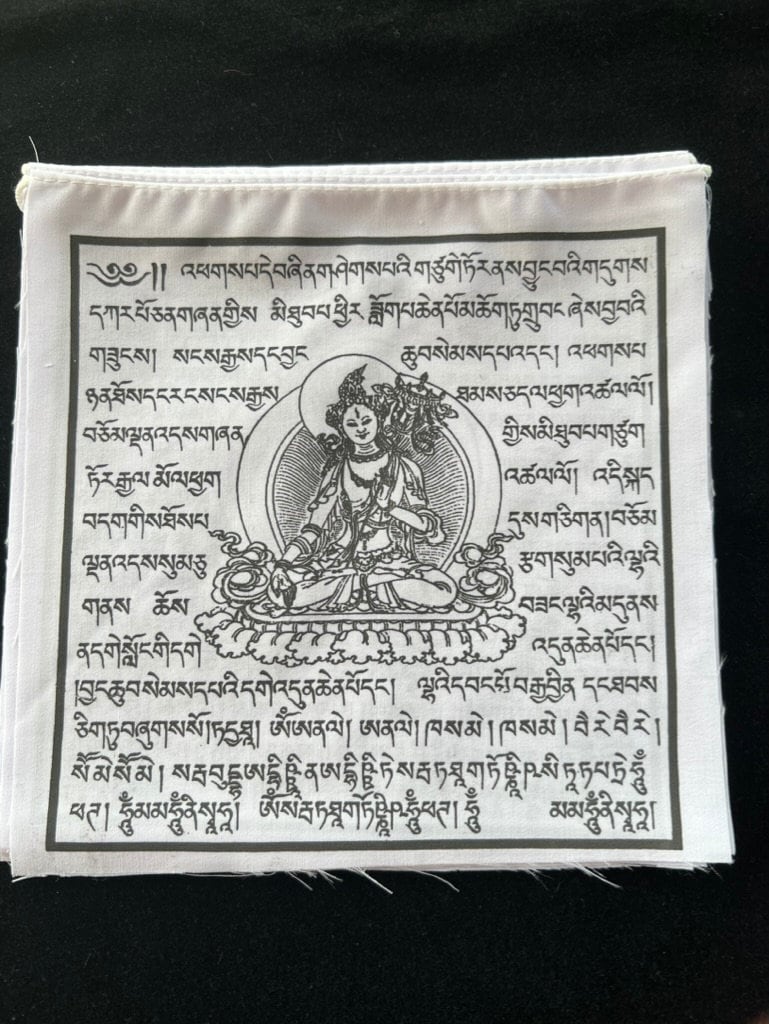 ༄༅།། འཕགས་པ་དེ་བཞིན་གཤེགས་པའི་གཙུག་ཏོར་ནས་བྱུང་བའི་གདུགས
དཀར་པོ་ཅན་གཞན་གྱིས་ མི་ཐུབ་པ་ཕྱིར་ཟློག་པ་ཆེན་པོ་མཆོག་ཏུ་གྲུབ་ང་ ཞེས་བྱ་བའི
གཟུངས། སངས་རྒྱས་དང་བྱང ཆུབ་སེམས་དཔའ་དང། འཕགས་པ
ཉན་ཐོས་དང་རང་སངས་རྒྱས ཐམས་ཅད་ལ་ཕྱག་འཚལ་ལོ།
བཅོམ་ལྡན་འདས་གཞན གྱིས་མི་ཐུབ་པ་གཙུག
ཏོར་རྒྱལ་མོ་ལ་ཕྱག འཚལ་ལོ། འདི་སྐད
བདག་གིས་ཐོས་པ དུས་གཅིག་ན།བཅོམ
ལྡན་འདས་སུམ་ཅུ རྩ་གསུམ་པའི་ལྷའི
གནས་ ཆོས བཟང་ལྷའི་མདུན་ས
ན་དགེ་སློང་གི་དགེ འདུན་ཆེན་པོ་དང།
།བྱང་ཆུབ་སེམས་དཔའི་དགེ་འདུན་ཆེན་པོ་དང། ལྷའི་དབང་པོ་བརྒྱ་བྱིན་ དང་ཐབས
ཅིག་ཏུ་བཞུགས་སོ།ཏདྱ་ཐཱ། ཨོཾ་ཨ་ནལེ། ཨ་ནལེ། ཁ་ས་མེ །ཁ་ས་མེ །བཻ་རེ་བཻ་རེ །
སོཽ་མེ་སོཽ་མེ །སརྦ་བུདྡྷ་ཨ་དྷིཥྛཱ་ན་ཨ་དྷིཥྛི་ཏེ་སརྦ་ཏ་ཐཱ་ག་ཏོཥྞཱི་ཥ་སི་ཏཱ་ཏ་པ་ཏྲེ་ཧཱུྃ
ཕཊ། ཧཱུྃ་མ་མ་ཧཱུྃ་ནི་སྭཱ་ཧཱ། ཨོཾ་སརྦ་ཏ་ཐཱ་ག་ཏོཥྞཱི་ཥ་ཧཱུྃ་ཕཊ། ཧཱུྃ མ་མ་ཧཱུྃ་ནི་སྭཱ་ཧཱ།